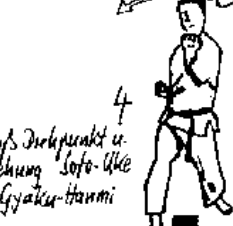 4
Drehpunkt u.
Soto-Uke
Gyaku-Hanmi